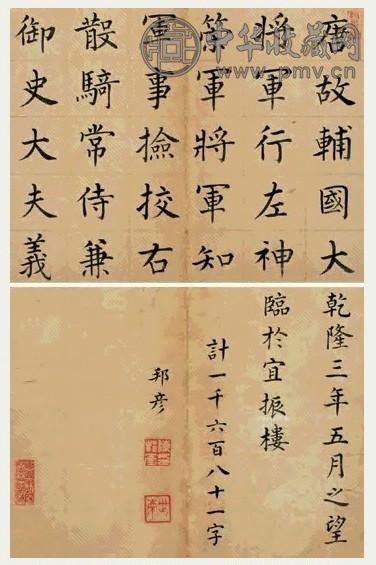 中华收藏网
www.pmv.cn
唐故輔國大
將軍行左神
策軍將軍知
軍事撿挍右
散騎常侍兼
御史大夫義
乾隆三年五月之望
臨於宜振樓
計一千六百八十一字
邦彦